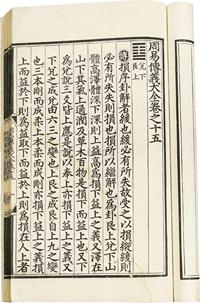 周易傳義大全卷之十五
兌下
艮上
傳損序卦解者緩也緩必有所失故受之以損縱緩則
必有所失失則損也損所以繼解也為卦艮上兌下山
體高澤體深下深則上益高為損下益上之義又澤在
山下其氣上通潤及草木百物是損下而益上也又下
為兌說三爻皆上應是說以奉上亦損下益上之義又
下兌之成兌由六三之變也上艮之成艮自上九之變
也三本剛而成柔上本柔而成剛亦損下益上之義損
上而益於下則為益取下而益於上則為損在人上者